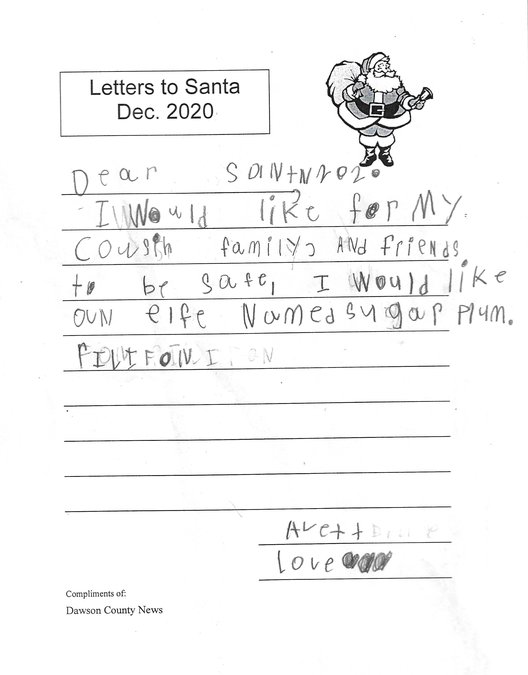 Letters to Santa
Dec. 2020
Dear
I Would like for My
Cousin family, AND friends
to be safe, I Would like
OUN elfe Named sugar Plum.
Avett
Love
Compliments of:
Dawson County News